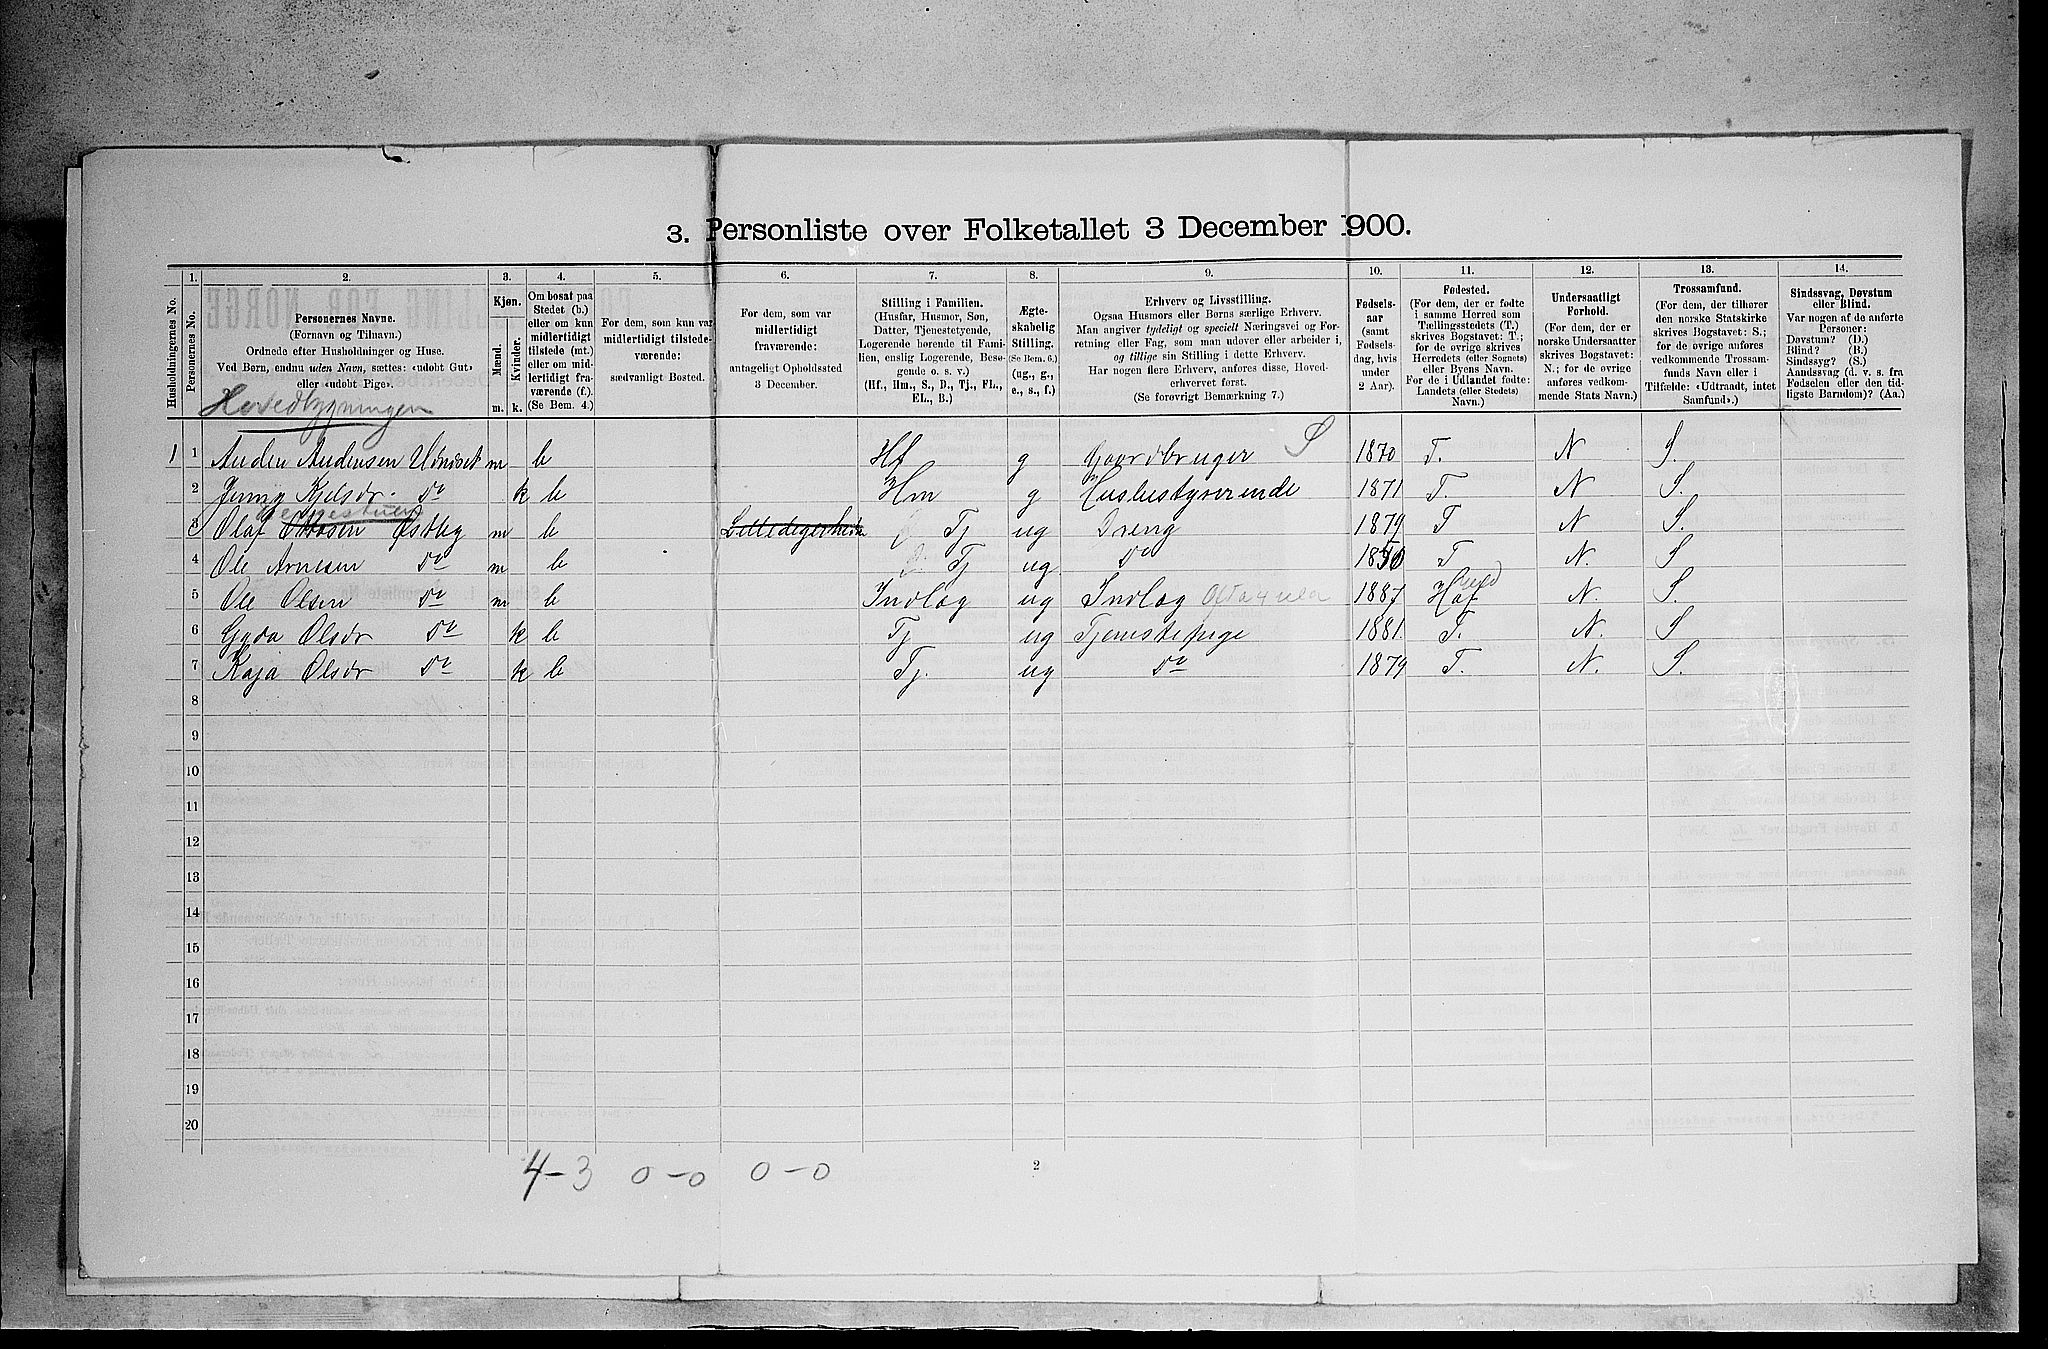 3. Personliste over Folketallet 3 December 1900.
1. 2. 3. 4. 5. 6. 7. 8. 9. 10. 11. 12. 13. 14.
Husholdningernes No.
Personernes No.
Personernes Navne.
(Fornavn og Tilnavn.)
Ordnede efter Husholdninger og Huse.
Ved Børn, endnu uden Navn, sættes: «udøbt Gut»
eller «udøbt Pige».
Kjøn.
Mænd.
Kvinder.
m. k.
Om bosat paa
Stedet (b.)
eller om kun
midlertidigt
tilstede (mt.)
eller om mid-
lertidigt fra-
værende (f.).
(Se Bem. 4.)
For dem, som kun var
midlertidigt tilstede-
værende:
sædvanligt Bosted.
For dem, som var
midlertidigt
fraværende:
antageligt Opholdssted
3 December.
Stilling i Familien.
(Husfar, Husmor, Søn,
Datter, Tjenestetyende,
Logerende hørende til Fami-
lien, enslig Logerende, Besø-
gende o. s. v.)
(Hf., Hm., S., D., Tj., FL.,
EL., B.)
Ægte-
skabelig
Stilling.
(Se Bem. 6.)
(ug., g.,
e., s., f.)
Erhverv og Livsstilling.
Ogsaa Husmors eller Børns særlige Erhverv.
Man angiver tydeligt og specielt Næringsvei og For-
retning eller Fag, som man udover eller arbeider i,
og tillige sin Stilling i dette Erhverv.
Har nogen flere Erhverv, anføres disse, Hoved-
erhvervet først.
(Se forøvrigt Bemærkning 7.)
Fødsels-
aar
(samt
Fødsels-
dag, hvis
under
2 Aar).
Fødested.
(For dem, der er fødte
i samme Herred som
Tællingsstedets (T.)
skrives Bogstavet: T.;
for de øvrige skrives
Herredets (eller Sognets)
eller Byens Navn.
For de i Udlandet fødte:
Landets (eller Stedets)
Navn.)
Undersaatligt
Forhold.
(For dem, der er
norske Undersaatter
skrives Bogstavet:
N.; for de øvrige
anføres vedkom-
mende Stats Navn.)
Trossamfund.
(For dem, der tilhører
den norske Statskirke
skrives Bogstavet: S.;
for de øvrige anføres
vedkommende Trossam-
funds Navn eller i
Tilfælde: «Udtraadt, intet
Samfund».)
Sindssvag, Døvstum
eller Blind.
Var nogen af de anførte
Personer:
Døvstum? (D.)
Blind? (B.)
Sindssyg? (S.)
Aandssvag (d. v. s. fra
Fødselen eller den tid-
ligste Barndom)? (Aa.)
Hovedbygningen
1 1 Auden Audensen m b Hf g Gaardbruger S 1870 T. N S.
2 Jenny Kjelsdr. do k b Hm g Husbestyrerinde 1871 T. N S.
3 Olaf Ottosen Østbeg m b Tj ug Dreng 1879 T N S.
4 Ole Arnesen do m b Tj ug do T N. S.
5 Ole Olsen do m b Indlog ug Indlog 1887 Hof N. S.
6 Gyda Olsdr do k b Tj ug Tjenestepige 1881. T. N. S
7 Kaja Olsdr do k b Tj. ug do 1879 T. N. S.
8
9
10
11
12
13
14
15
16
17
18
19
20
4-3 0-0 0-0
2